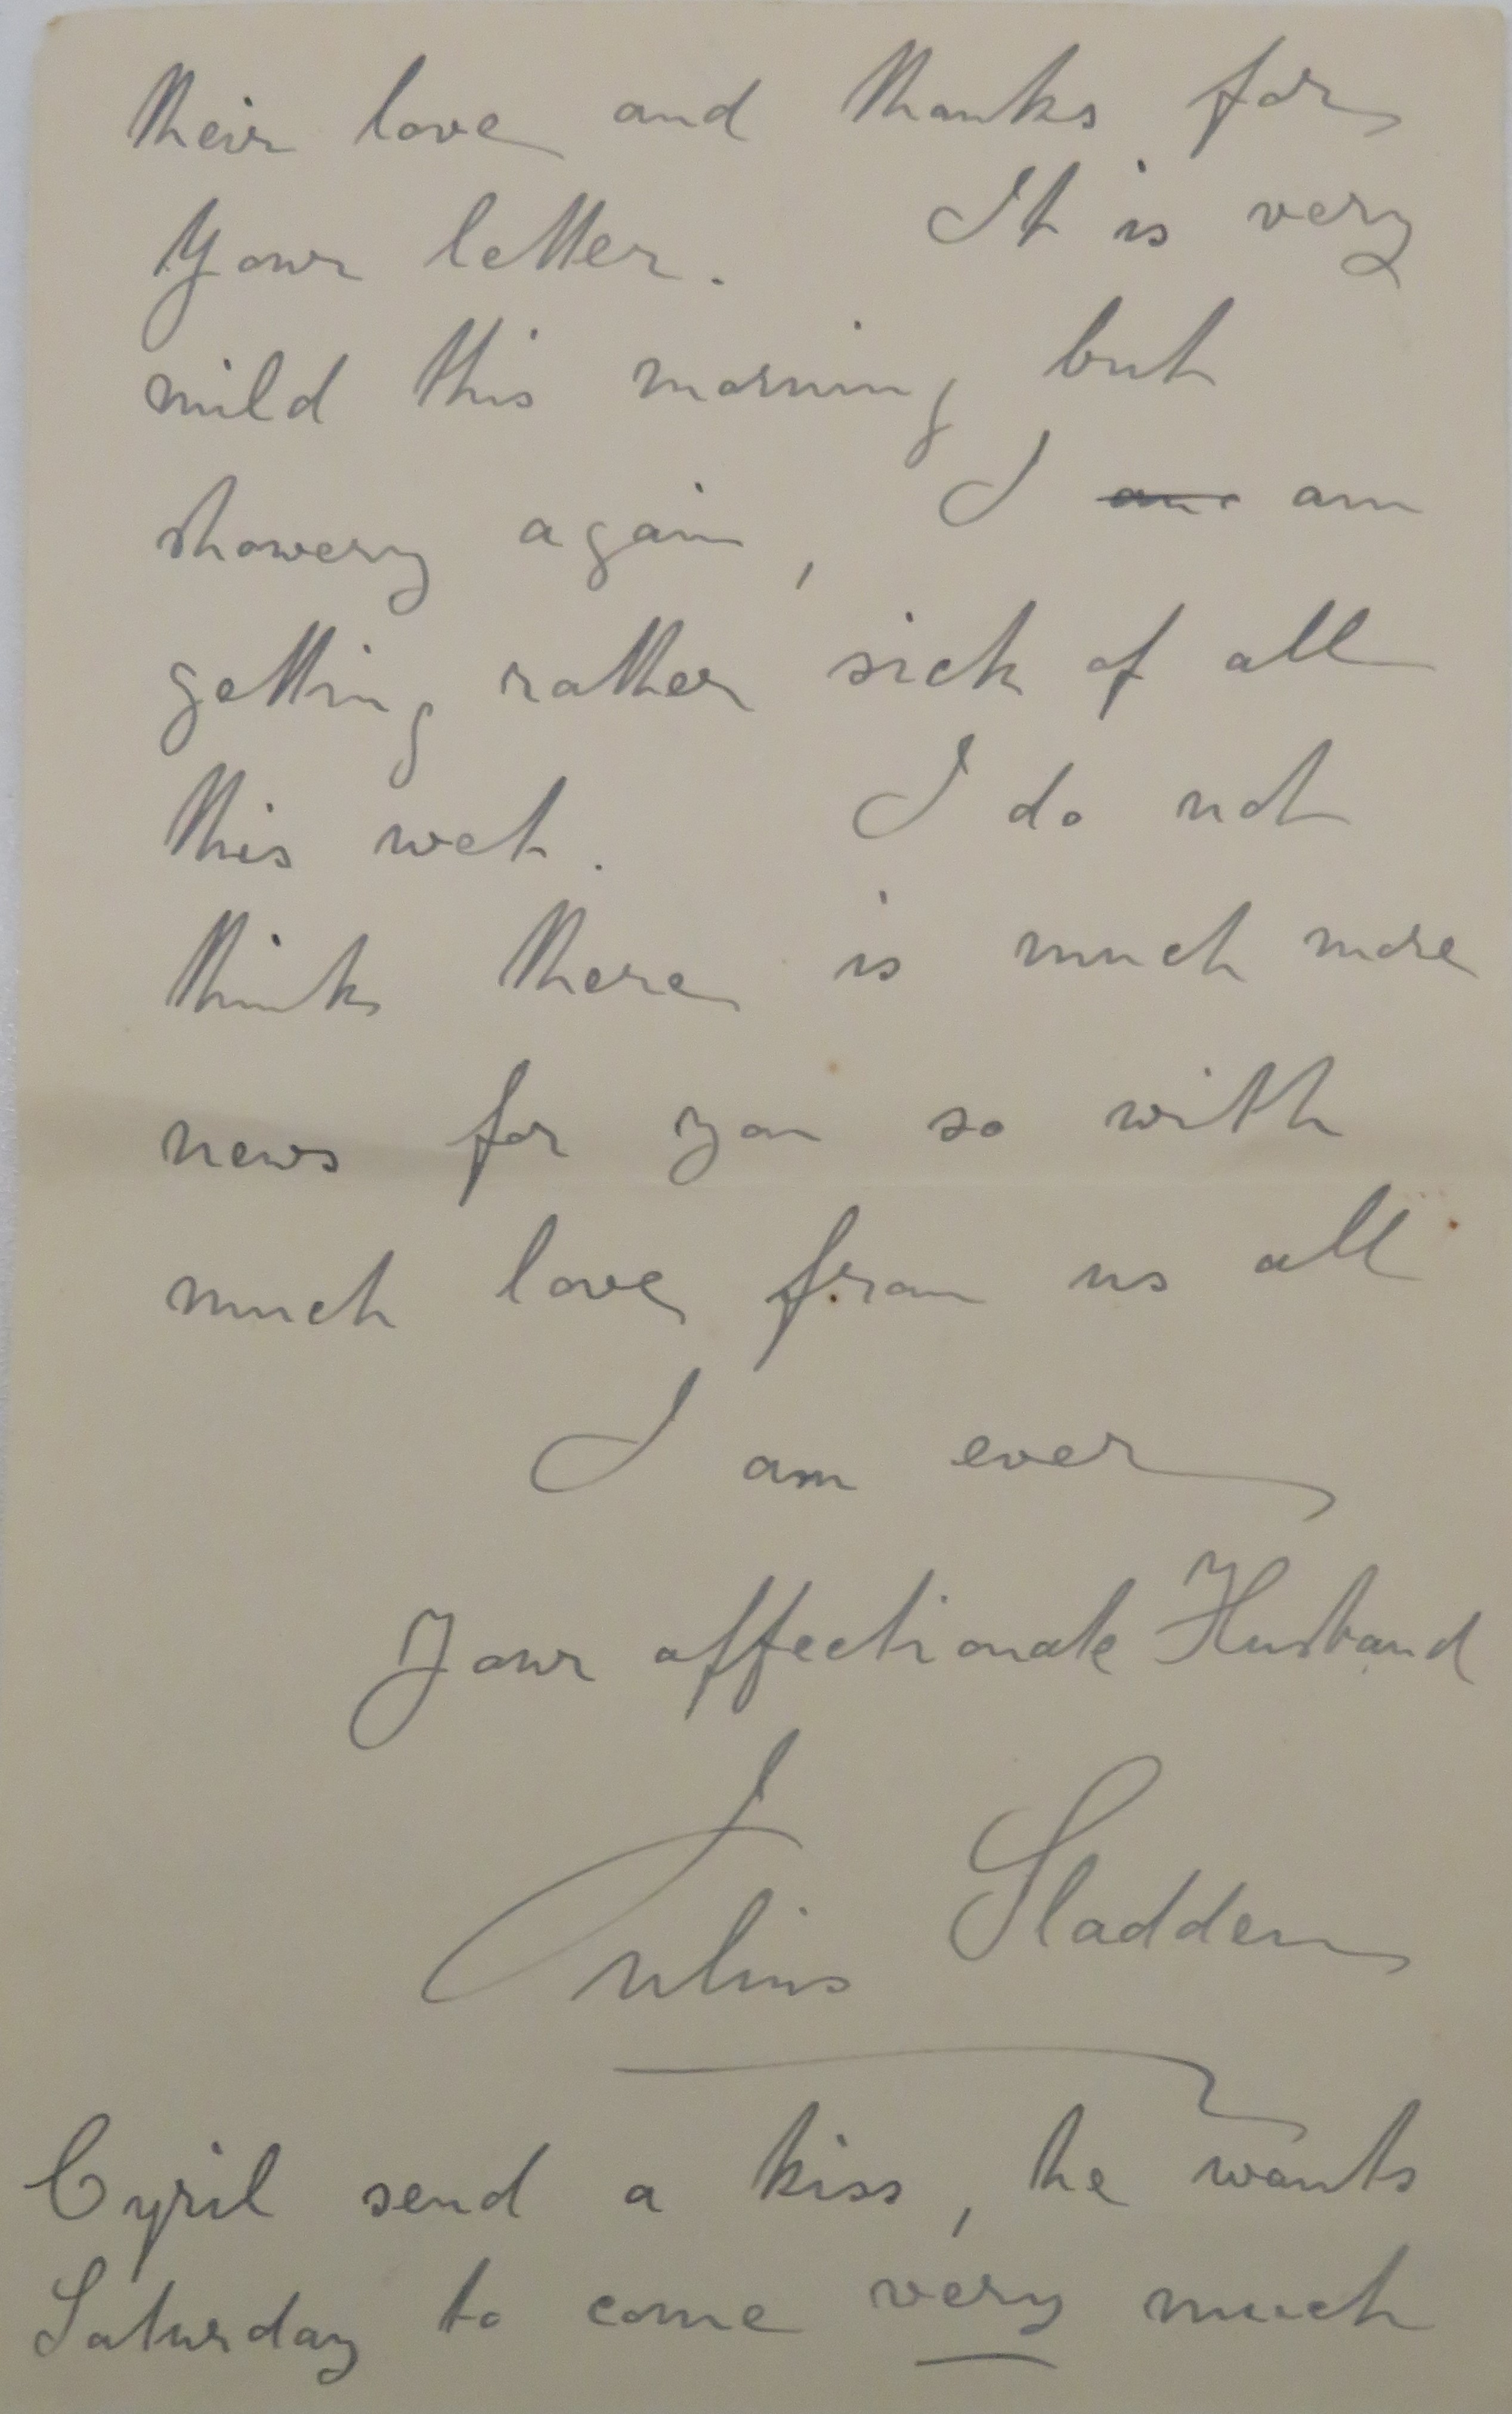 their love and thanks for
your letter. It is very
mild this morning but
showery again, I am
getting rather sick of all
this wet. I do not
think there is much more
news for you so with
much love from us all
I am ever
Your affectionate Husband
Julius Sladden
Cyril send a kiss, he wants
Saturday to come very much